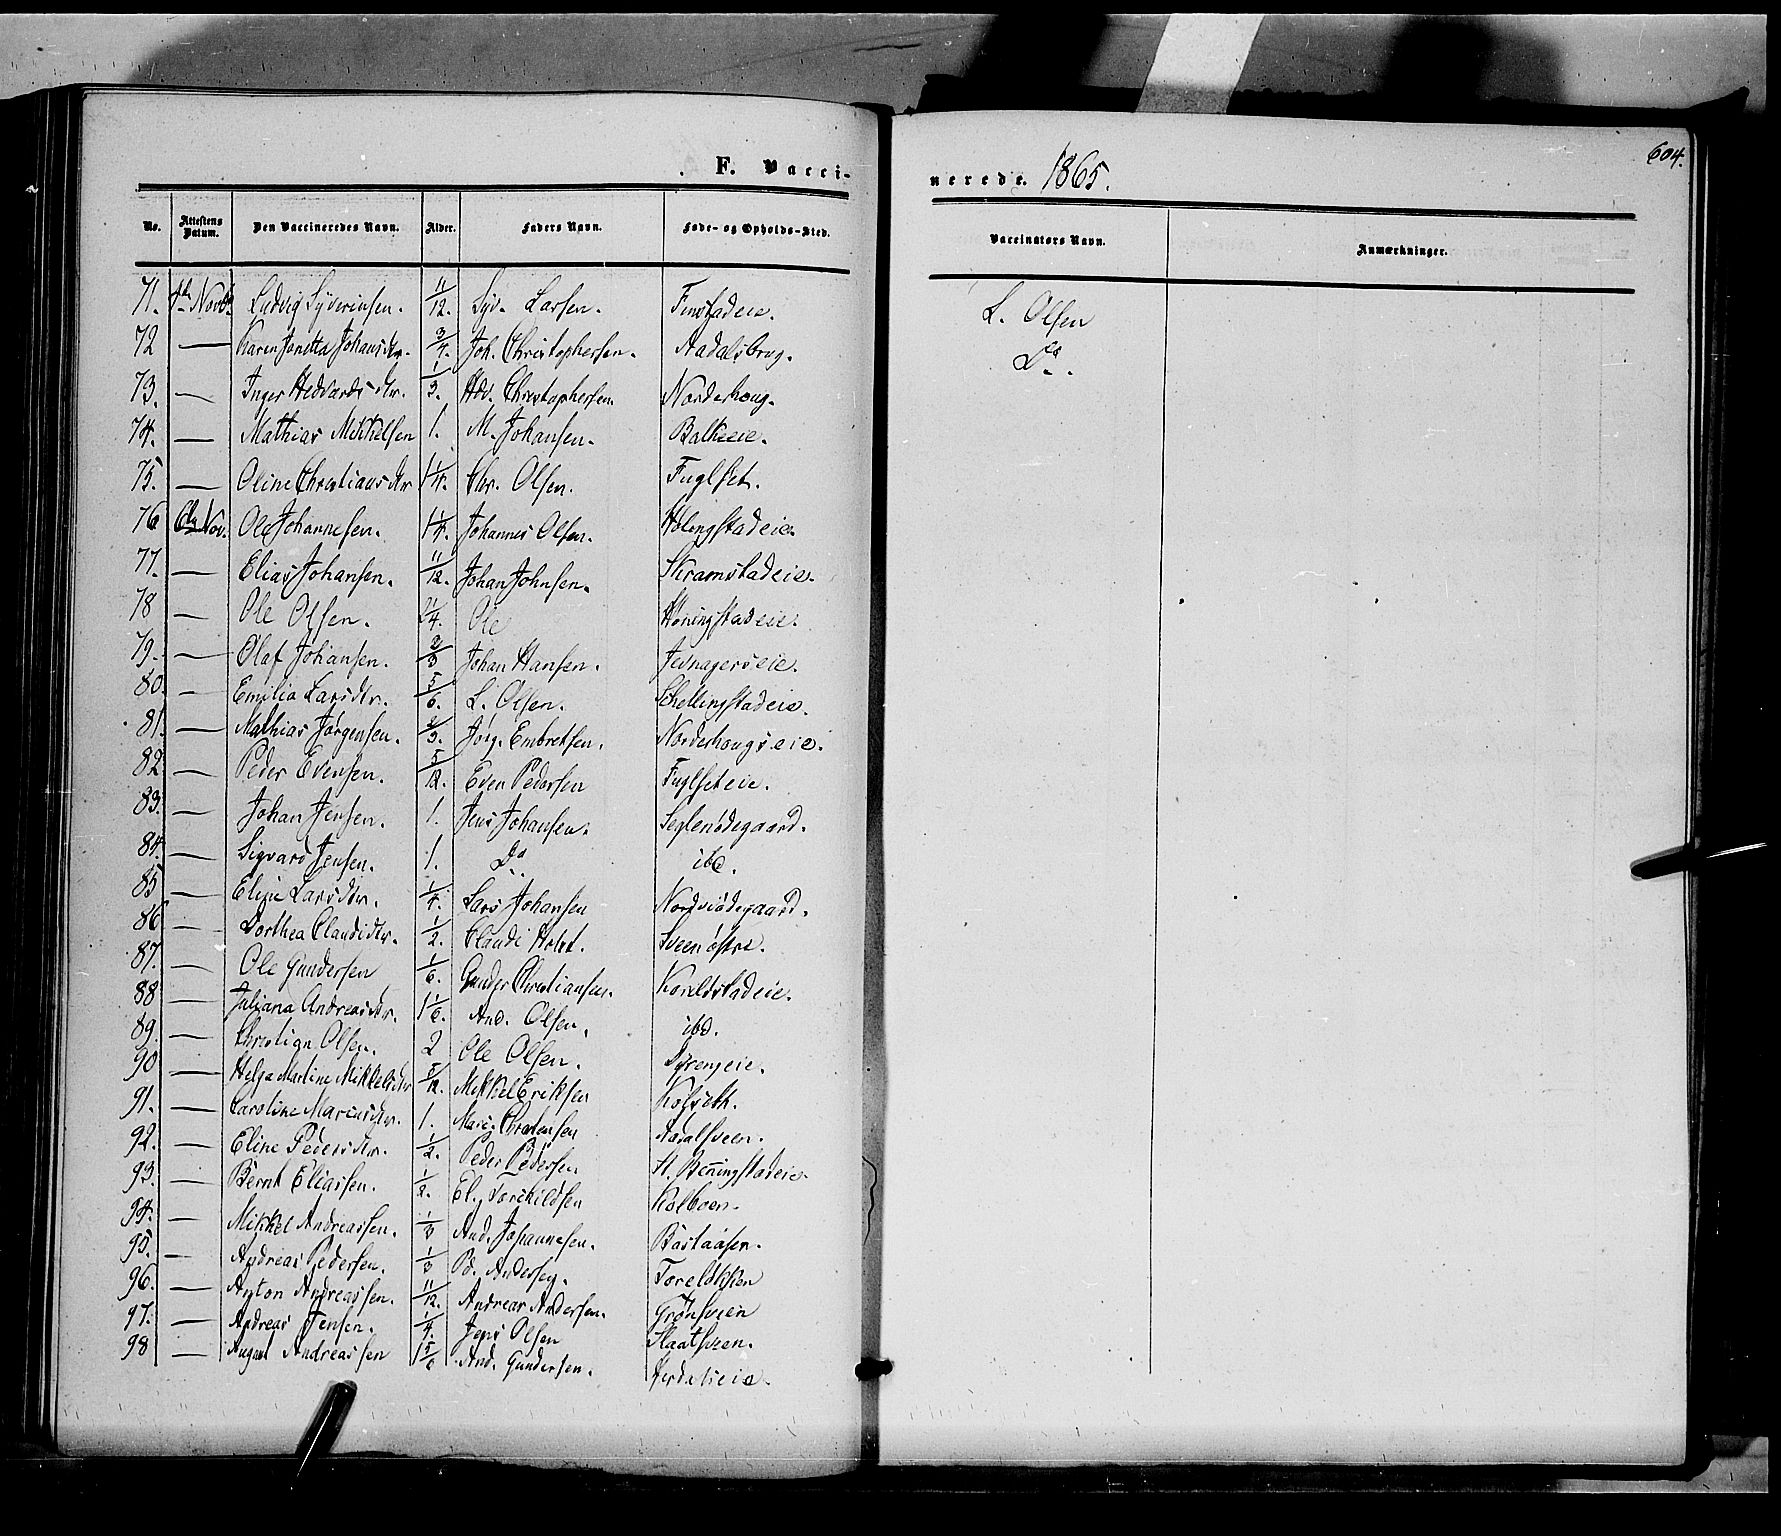 604.
F. Vaccinerede. 1865.
No. Attestens Datum. Den Vaccineredes Navn. Alder. Faders Navn. Føde- og Opholds-Sted. Vaccinators Navn. Anmærkninger.
71. Novbr Ludvig Syverinsen. 11/12. Syv. Larsen. Finstadeie. L. Olsen
72 — Karen Janetta Johansdtr. 3/4. Joh. Christophersen. Aadalsbrug. Do.
73. — Inger Hedvardsdtr. 1/3. Hdv. Christophersen. Norderhoug.
74. — Mathias Mikkelsen 1. M. Johansen. Balkeeie.
75. — Oline Christiansdtr 1 1/4. Chr. Olsen. Fuglset.
76 Nov. Ole Johannesen. 1 1/4. Johannes Olsen. Hølingstadeie.
77. — Elias Johansen. 11/12. Johan Johnsen. Skramstadeie.
78 — Ole Olsen. Ole
79. — Olaf Johansen. 2/3 Johan Hansen. Jevnagerseie.
80. — Emilia Larsdtr. 5/6. L. Olsen. Skellingstadeie.
81. — Mathias Jørgensen. 2/3. Jørg. Embretsen. Norderhougseie.
82. — Peder Evensen. 5/12. Even Pedersen Fuglseteie.
83. — Johan Jensen. 1. Jens Johansen. Seglenødegaard.
84. — Sigvard Jensen. 1. Do ibd.
85 — Eline Larsdtr. 1/4. Lars Johansen Nordviødegaard.
86 — Dorthea Claudidtr. 1/2. Claudi Holst. Sveen østre.
87. — Ole Gundersen 1/6. Gunder Christiansen.
88 — Juliana Andreasdtr. 1 1/6. And. Olsen. ibd.
89. — Christian Olsen. 2 Ole Olsen.
90 — Helga Martine Mikkelsdtr 5/12. Mikkel Eriksen Kolseth.
91. — Caroline Mariusdtr. 1. Mari. Christensen Aadalsveen.
92. — Eline Pedersdtr. 1/2. Peder Pedersen. St. Beningstadeie.
93. — Bernt Eliassen. 1/2. El. Torkildsen Kolboen.
94. — Mikkel Andreassen. 1/3 And. Johannesen. Bastaasen.
95. — Andreas Pedersen. 1/3 Pd. Andersen.
96. — Anton Andreassen. 11/12. Andreas Andersen. Grønsveen
97. — Andreas Jensen. 1/4. Jens Olsen Slaatsveen.
98 — August Andreassen 1 5/6 And. Gundersen.